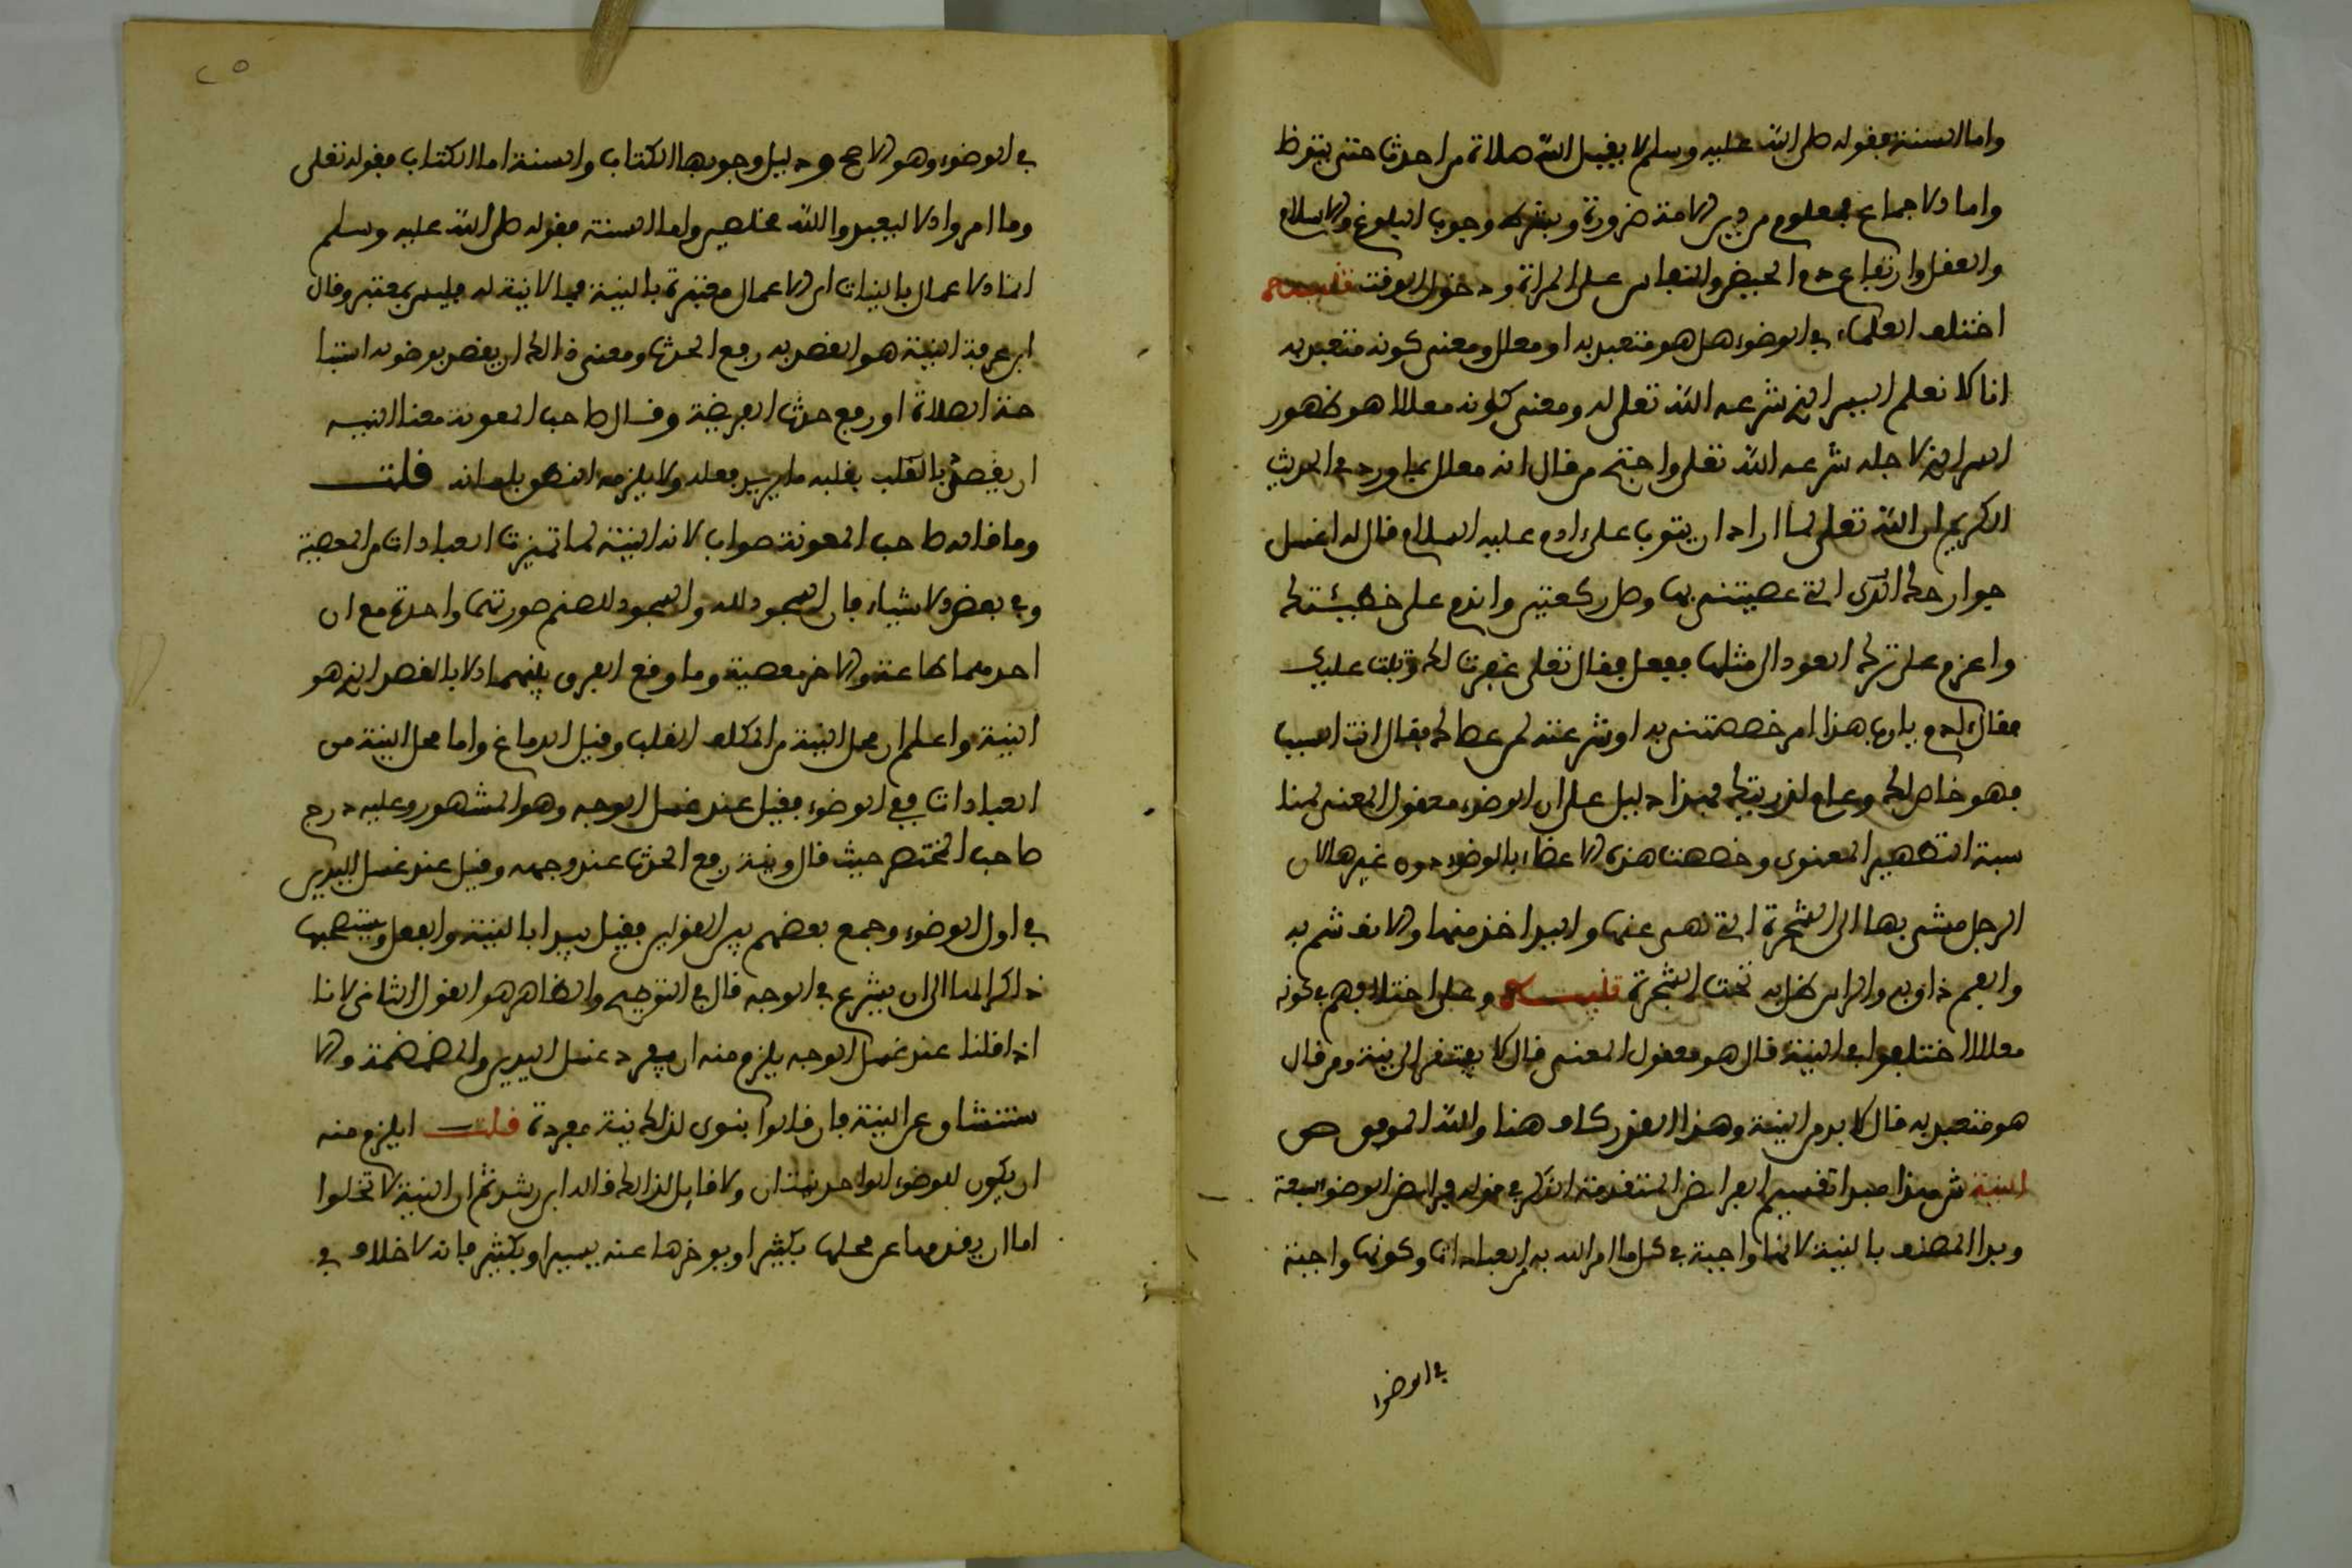 واما السنة فقوله صلى الله عليه وسلم لا يقبل الله صلاة من احدث حتى يتوظا
واما الاجماع فمعلوم من دين الامة ضرورة وبشرط وجوب البلوغ والاسلام
والعقل وارتفاع دم الحيض والنفاس على المراة ودخول الوقت تنبيه
اختلف العلماء في الوضوء هل هو متعبد به او معلل ومعنى كونه متعبد به
انا لا نعلم السر الذي شرعه الله تعلى له ومعنى كونه معللا هو ظهور
السر الذي لاجله شرعه الله تعلى واحتج من قال انه معلل بما ورد في الحديث
الكريم ان الله تعلى لما اراد ان يتوب على ادم عليه السلام قال له اغسل
جوارحك التي عصيتني بها وصل ركعتين واندم على خطيئتك
واعزم على ترك العود الى مثلها ففعل فقال تعلى غفرت لك وتبت عليك
فقال ادم يا رب هذا امر خصصتني به او شرعته لمن عصاك فقال انت السبب
فهو خاص لك وعام لذريتك فهذا دليل على ان الوضوء معقول المعنى لمنا
سبة التطهير المعنوي وخصصت هذه الاعضاء بالوضوء دون غيرها لان
الرجل مشى بها الى الشجرة التي نهى عنها واليد اخذ منها والانف شم به
والفم ذاق به والراس ظل به تحت الشجرة تنبيه وعلى اختلافهم في كونه
معللا اختلفوا في النية قال هو معقول المعنى قال لا يفتقر الى نية ومن قال
هو متعبد به قال لا بد من النية وهذا القدر كاف هنا والله الموفق ص
النية ش هذا مبدا تقسيم الفرائض المتقدمة الذكر في قوله فرائض الوضوء سبعة
وبدا المصنف بالنية لانها واجبة في كل ما امر الله به من العبادات وكونها واجبة
في الوضوا
٢٥
في الوضوء وهو الاصح ودليل وجوبها الكتاب والسنة اما الكتاب فقوله تعلى
وما امروا الا ليعبدوا الله مخلصين واما السنة فقوله صلى الله عليه وسلم
انما الاعمال بالنيات اي الاعمال معتبرة بالنية فما لا نية له فليس بمعتبر وقال
ابن عرفة النية هو القصد به رفع الحدث ومعنى ذالك ان يقصد بوضوئه استبا
حة الصلاة او رفع حدث الفريضة وقال صاحب المعونة معنا النيه
ان يقصد بالقلب بقلبه ما يريد بفعله ولا يلزمه النطق بلسانه قلت
وما قاله صاحب المعونة صواب لانه النية لما تميزت العبادات من المعصية
وفي بعض الاشياء فان السجود لله والسجود للصنم صورتهما واحدة مع ان
احدهما طاعة والاخر معصية وما وقع الفرق بينهما الا بالقصد الذي هو
النية واعلم ان محل النية من المكلف القلب وقيل الدماغ واما محل النية من
العبادات ففي الوضوء فقيل عند غسل الوجه وهو المشهور وعليه درج
صاحب المختصر حيث قال ونية رفع الحدث عند وجهه وقيل عند غسل اليدين
في اول الوضوء وجمع بعضهم بين القولين فقيل يبدا بالنية والفعل ويستصحبها
ذاكرا لها الى ان يشرع في الوجه قال في التوضيح والظاهر هو القول الثاني لانا
اذا قلنا عند غسل الوجه يلزم منه ان يفرد غسل اليدين والمضمضة والا
ستنشاق عن النية فان قالوا ينوى لذلك نية مفردة قلت ايلزم منه
ان يكون للوضوء الواحد نيتان ولا قايل لذالك قاله ابن رشد ثم ان النية لا تخلوا
اما ان يقدمها عن محلها بكثير او يوخرها عنه بيسير او بكثير فانه لا خلاف في